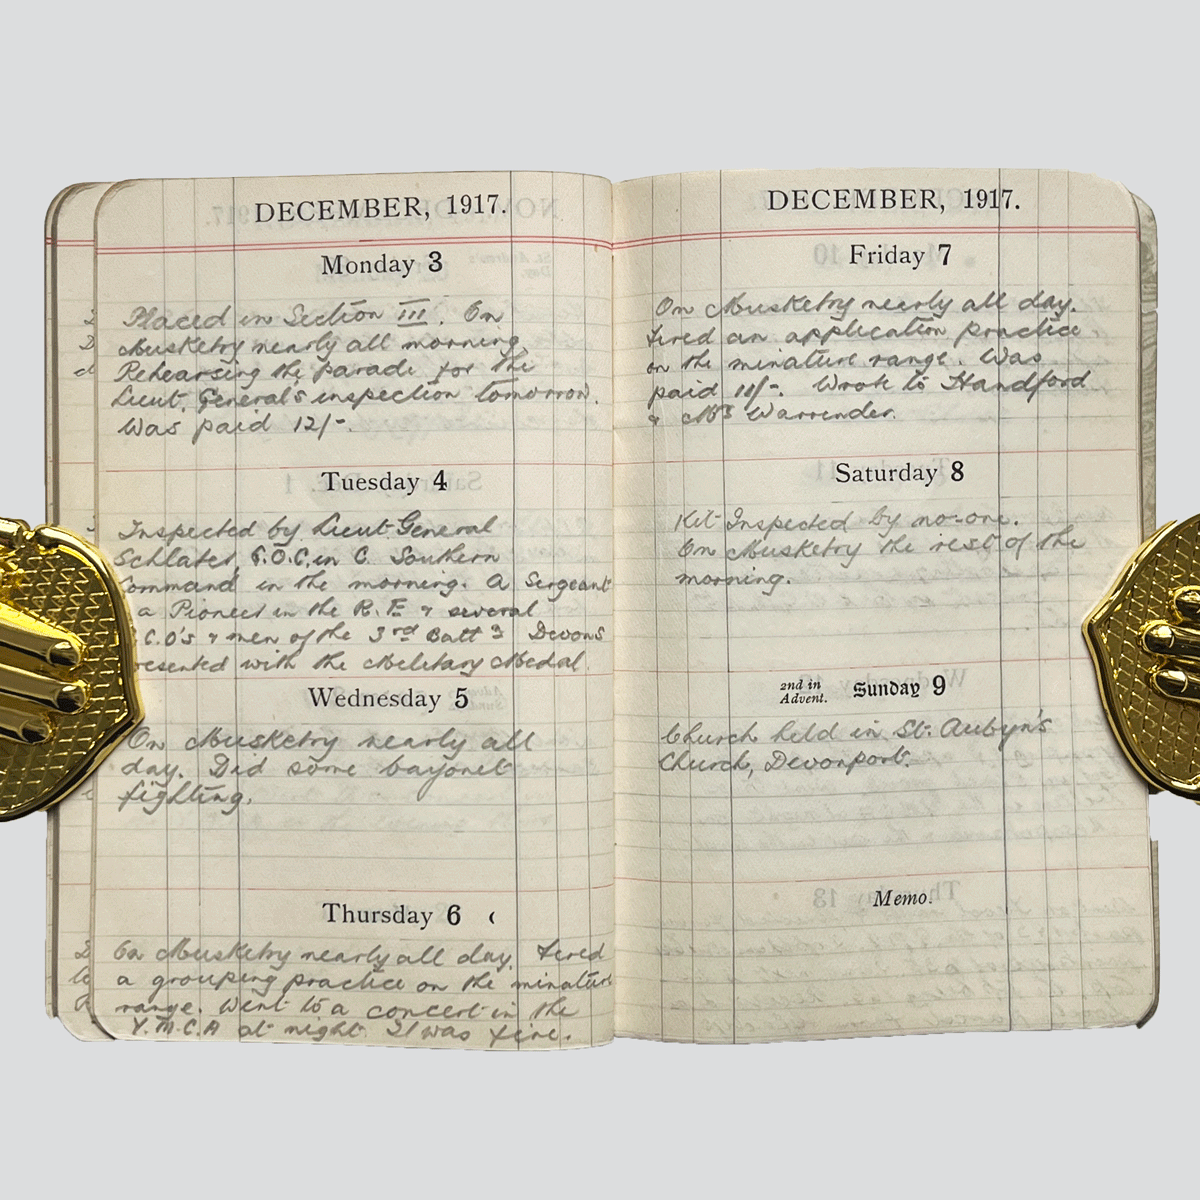 DECEMBER, 1917.
Monday 3
Placed in Section III. On
Musketry nearly all morning
Rehearsing the parade for the
Lieut. General's inspection tomorrow.
Was paid 12/-.
Tuesday 4
Inspected by Lieut General
Schlater, G.O.C. in C. Southern
Command in the morning. A Sergeant
a Pioneer in the R.E. & several
C.O's & men of the 3rd Batt Devons
resented with the Military Medal.
Wednesday 5
On Musketry nearly all
day. Did some bayonet
fighting.
Thursday 6
On Musketry nearly all day. Fired
a grouping practice on the minature
range. Went to a concert in the
Y.M.C.A at night. It was fine.
DECEMBER, 1917.
Friday 7
On Musketry nearly all day.
Fired an application practice
on the minature range. Was
paid 11/-. Wrote to Handford
& Mrs Warrender.
Saturday 8
Kit Inspected by no-one.
On Musketry the rest of the
morning.
2nd in Advent. Sunday 9
Church held in St. Aubyn's
Church, Devonport.
Memo.